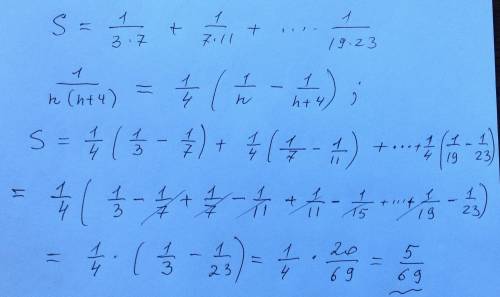 S = 1/(3·7) + 1/(7·11) + ···· 1/(19·23)
1/(n(n+4)) = 1/4 (1/n - 1/(n+4)) ;
S = 1/4 (1/3 - 1/7) + 1/4 (1/7 - 1/11) + ···+ 1/4 (1/19 - 1/23)
= 1/4 (1/3 - 1/7 + 1/7 - 1/11 + 1/11 - 1/15 + ···+ 1/19 - 1/23)
= 1/4 · (1/3 - 1/23) = 1/4 · 20/69 = 5/69